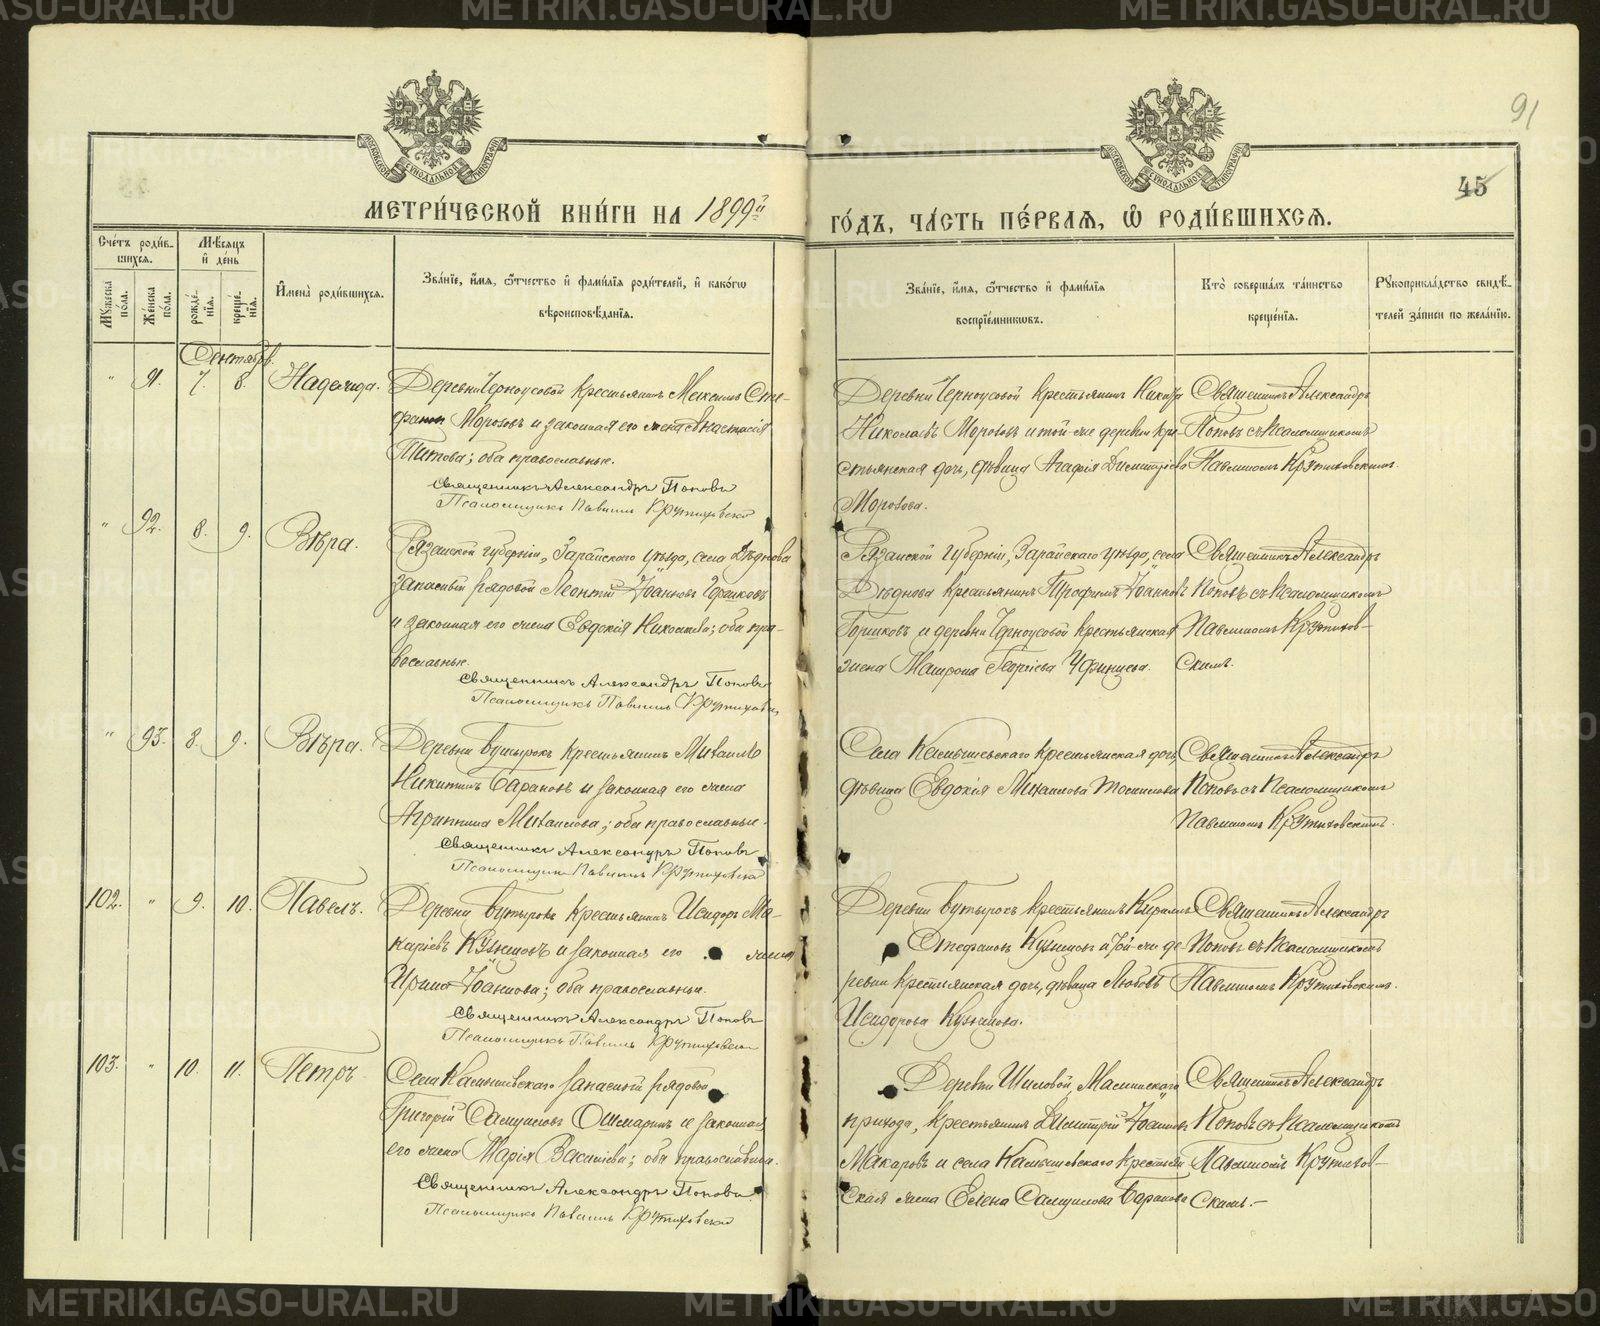 91
45
МЕТРИ́ЧЕСКОЙ КНИ́ГИ НА 1899й
ГО́ДЪ, ЧА́СТЬ ПЕ́РВАЯ, Ѡ РОДИ́ВШИХСЯ.
Сче́тъ роди́в-
шихся.
Му́жеска по́ла.
Же́нска по́ла.
Мѣ́сяцъ
и де́нь
рожде́-
нїя.
креще́-
нїя.
И҆мена̀ роди́вшихся.
Зва́нїе, и҆́мя, ѻ҆́тчество и҆ фами́лїя роди́телей, и҆ како́гѡ
вѣроисповѣ́данїя.
Зва́нїе, и҆́мя, ѻ҆́тчество и҆ фами́лїя
воспрїе́мникѡвъ.
Кто̀ соверша́лъ та́инство
креще́нїя.
Рꙋкоприкла́дство свидѣ́-
телей за́писи по жела́нїю.
Сентябрь.
" 91. 7. 8. Надежда.
Деревни Черноусовой крестьянинъ Максимъ Сте-
фановъ Морозовъ и законная его жена Анастасія
Титова; оба православные.
Священникъ Александръ Поповъ
Псаломщикъ Павлинъ Крутиховскій
Деревни Черноусовой крестьянинъ
Николаевъ Морозовъ и той-же деревни кре-
стьянская дочь, дѣвица Агафія Димитріева
Морозова.
Священникъ Александръ
Поповъ съ псаломщикомъ
Павлиномъ Крутиховскимъ.
" 92. 8. 9. Вѣра.
Рязанской губерніи, Зарайскаго уѣзда, села Дѣднова
запасный рядовой Леонтій Іоанновъ Горшковъ
и законная его жена Евдокія; оба пра-
вославные.
Священникъ Александръ Поповъ
Псаломщикъ Павлинъ Крутиховскій
Рязанской губерніи, Зарайскаго уѣзда, села
Дѣднова крестьянинъ Трофимъ Іоанновъ
Горшковъ и деревни Черноусовой крестьянская
жена Матрона Георгіева
Священникъ Александръ
Поповъ съ псаломщикомъ
Павлиномъ Крутихов-
скимъ.
" 93. 8. 9. Вѣра.
Деревни Бутырокъ крестьянинъ Михаилъ
Никитинъ Барановъ и законная его жена
Агриппина Михаилова; оба православные.
Священникъ Александръ Поповъ
Псаломщикъ Павлинъ Крутиховскій
Села Камышевскаго крестьянская дочь,
дѣвица Евдокія Михаилова
Священникъ Александръ
Поповъ съ псаломщикомъ
Павлиномъ Крутиховскимъ.
102. " 9. 10. Павелъ.
Деревни Бутырокъ крестьянинъ Исидоръ Ма-
каріевъ Кузнецовъ и законная его жена
Ирина Іоаннова; оба православные.
Священникъ Александръ Поповъ
Псаломщикъ Павлинъ Крутиховскій
Деревни Бутырокъ крестьянинъ Кириллъ
Стефановъ Кузнецовъ и той-же де-
ревни крестьянская дочь, дѣвица Любовь
Исидорова Кузнецова.
Священникъ Александръ
Поповъ съ псаломщикомъ
Павлиномъ Крутиховскимъ.
103. " 10. 11. Петръ.
Села Камышевскаго запасный рядовой
Григорій Самуиловъ Ошмаринъ и законная
его жена Марія Василіева; оба православные.
Священникъ Александръ Поповъ
Псаломщикъ Павлинъ Крутиховскій
Деревни Шиловой,
прихода, крестьянинъ Димитрій Іоанновъ
Макаровъ и села Камышевскаго крестьян-
ская жена Елена Самуилова Баранова
Священникъ Александръ
Поповъ съ псаломщикомъ
Павлиномъ Крутихов-
скимъ.-
METRIKI.GASO-URAL.RU